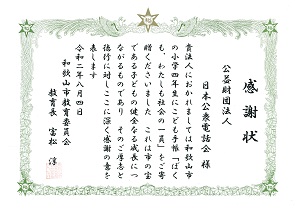 感謝状
公益財団法人
日本公衆電話会 様
貴法人におかれましては和歌山市
の小学四年生にこども手帳「ぼく
も、わたしも社会の一員」をご寄
贈くださいました これは市の宝
である子どもの健全なる成長につ
ながるものであり そのご厚志と
徳行に対しここに深く感謝の意を
表します
令和二年八月四日
和歌山市教育委員会
教育長 富松 淳